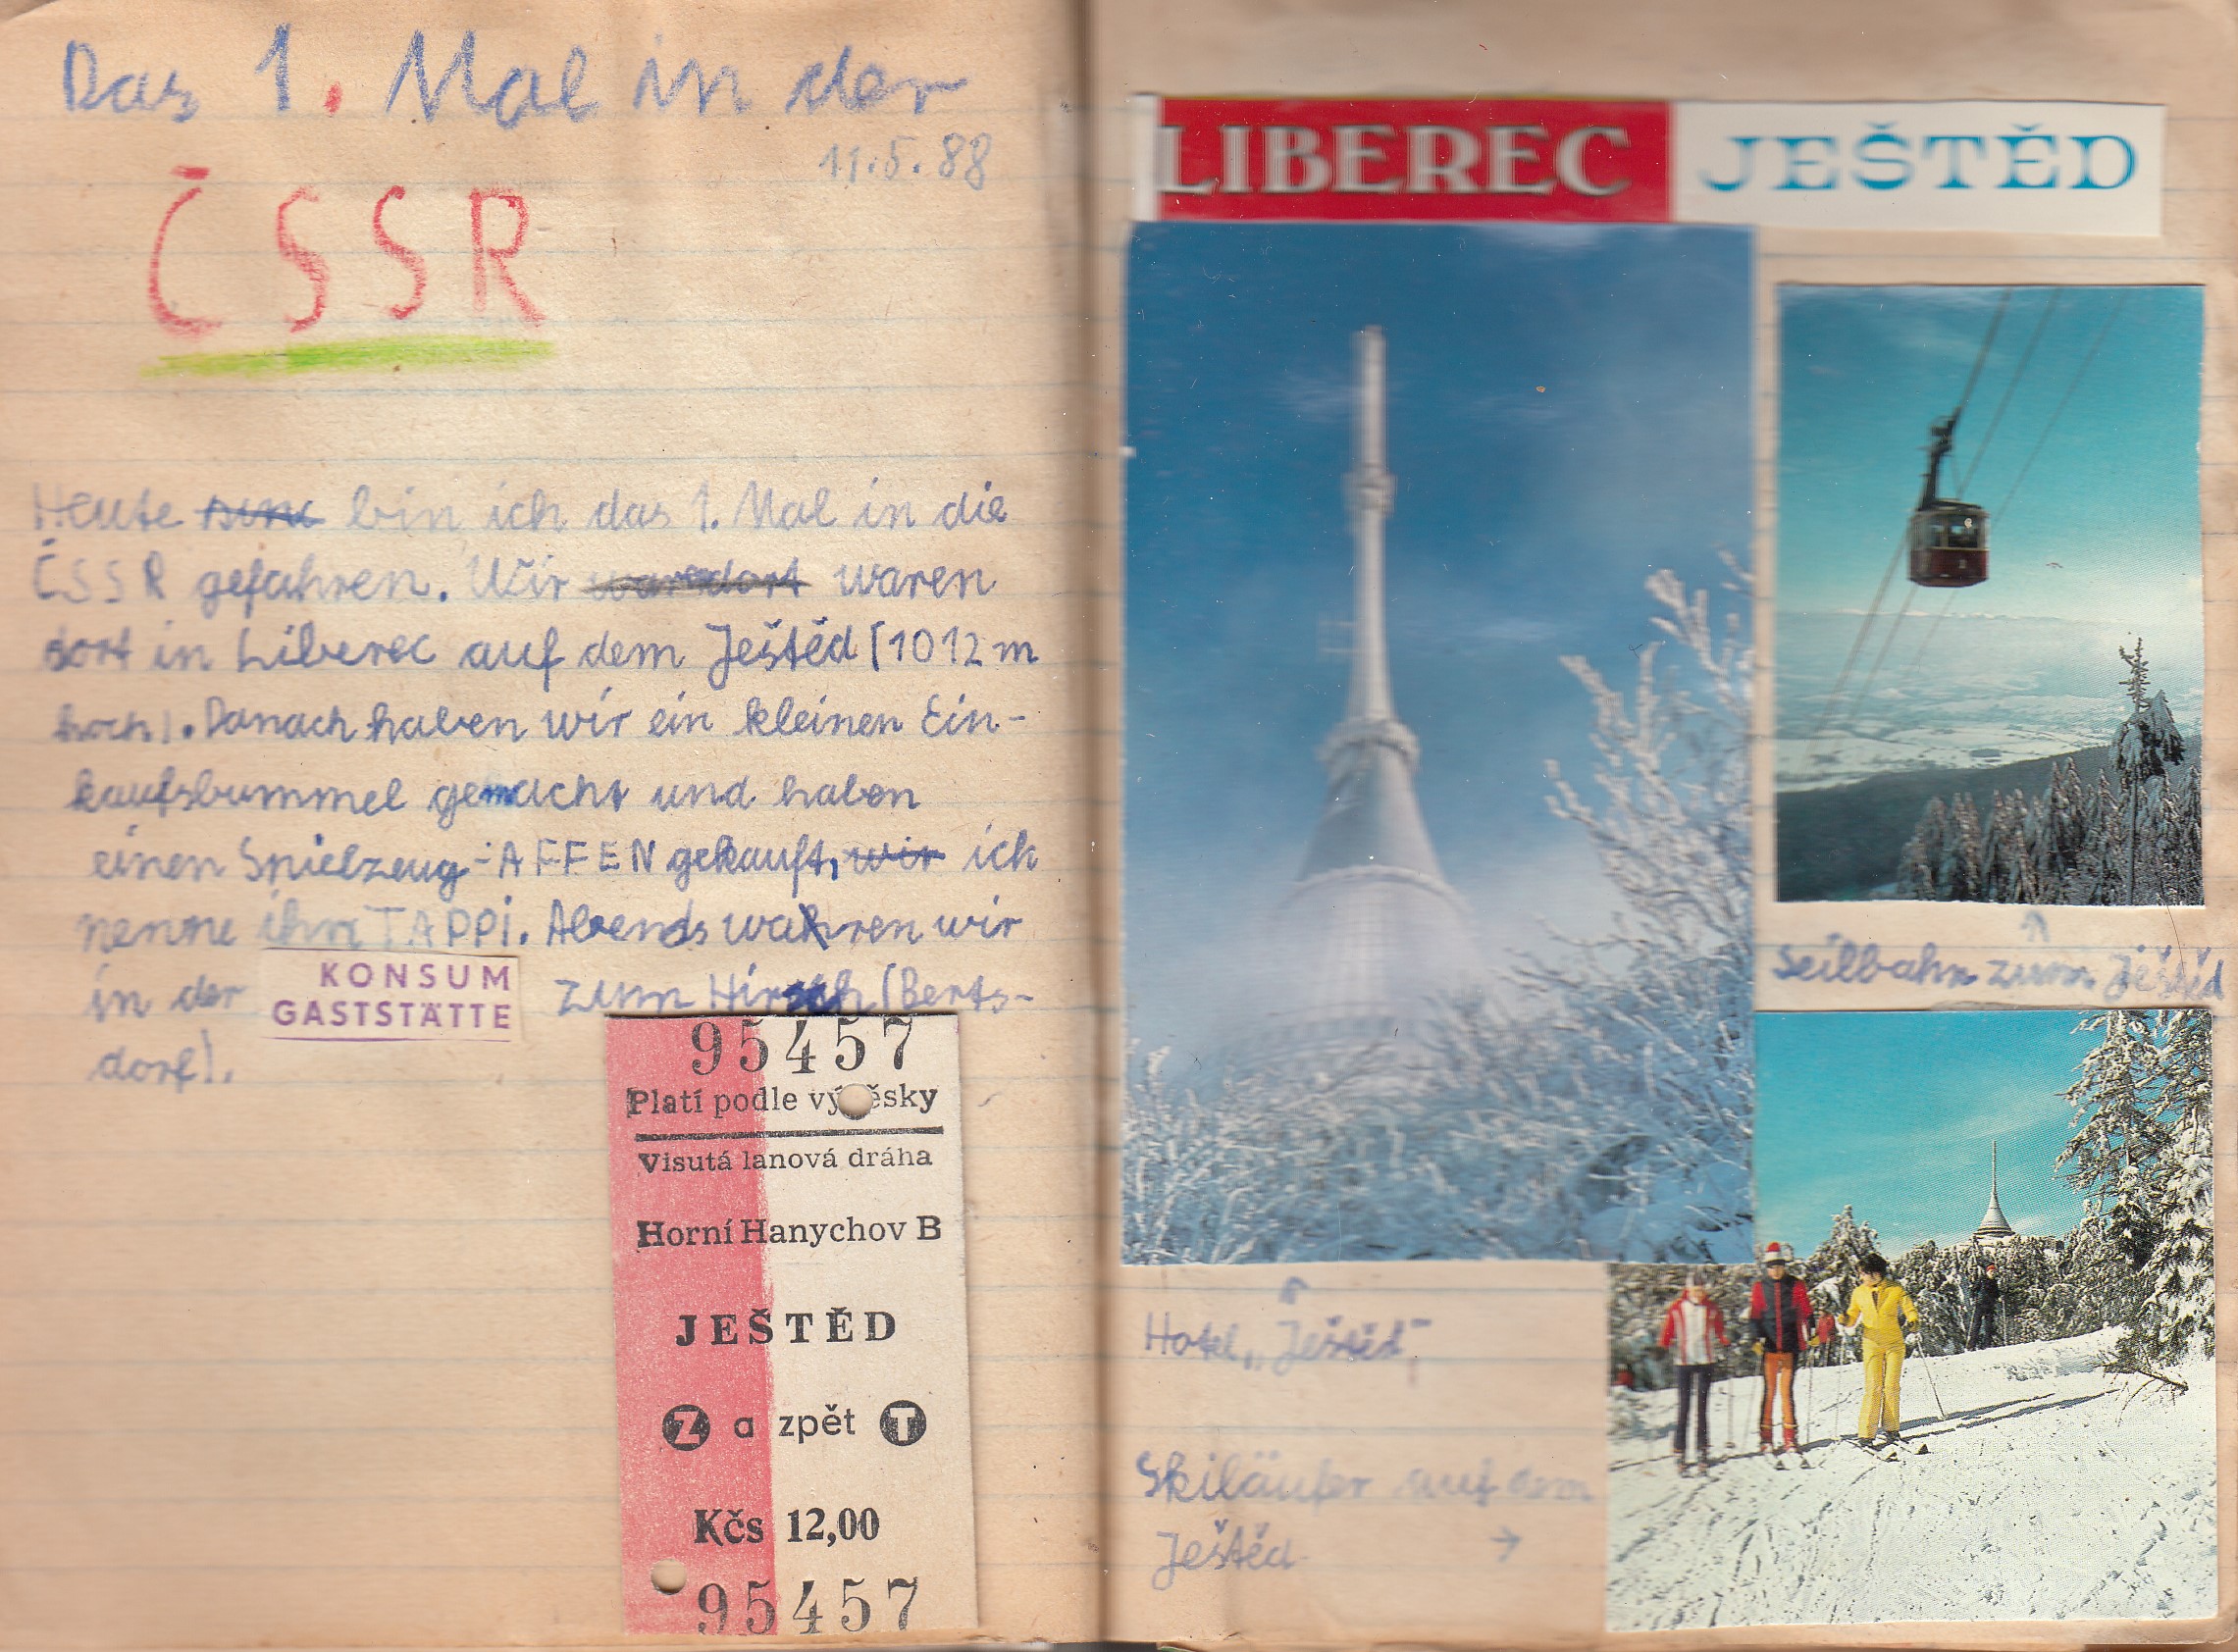 Das 1. Mal in der
11.5.88
ČSSR
Heute bin ich das 1. Mal in die
ČSSR gefahren. Wir waren
dort in Liberec auf dem Ještěd (1012 m
hoch). Danach haben wir ein kleinen Ein-
kaufsbummel gemacht und haben
einen Spielzeug-AFFEN gekauft, wir ich
nenne ihn TAPPI. Abends wahren wir
in der KONSUM GASTSTÄTTE zum Hirsch (Berts-
dorf).
95457
Platí podle vý ěsky
Visutá lanová dráha
Horní Hanychov B
JEŠTĚD
Z a zpět T
Kčs 12,00
95457
LIBEREC JEŠTĚD
Seilbahn zum Ještěd
Hotel „Ještěd“
Skiläufer auf dem
Ještěd →